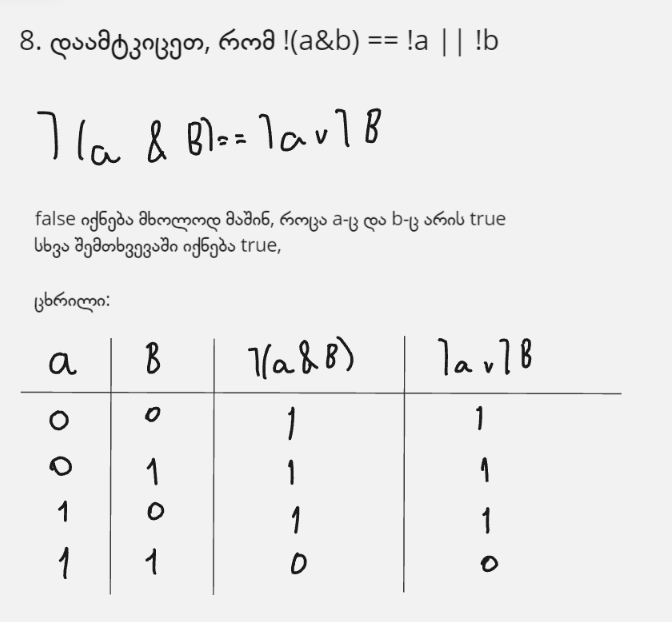 8. დაამტკიცეთ, რომ !(a&b) == !a || !b
⅂(a & B)== ⅂a v ⅂B
false იქნება მხოლოდ მაშინ, როცა a-ც და b-ც არის true
სხვა შემთხვევაში იქნება true,
ცხრილი:
a B ⅂(a & B) ⅂a v ⅂B
0 0 1 1
0 1 1 1
1 0 1 1
1 1 0 0